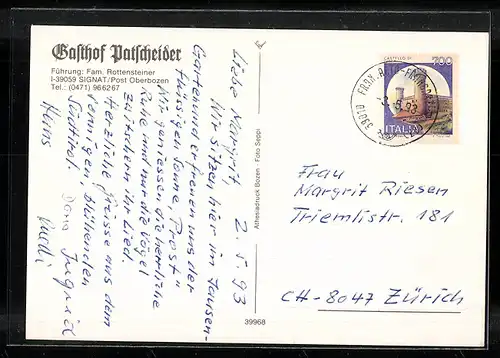 Gasthof Patscheider
Führung: Fam. Rottensteiner
I-39059 SIGNAT/Post Oberbozen
Tel.: (0471) 966267
2. 5. 93
Liebe Margrit
Wir sitzen hier im Jausen-
garten und erfreuen uns der
flüssigen Sonne, "Prost"
Wir geniessen die herrliche
Ruhe und nur die Vögel
zwitschern ihr Lied.
Herzliche Grüsse aus dem
sonnigen, blühenden
Südtirol. Dora Ingrid
Hans Ruedi
Athesiadruck Bozen - Foto Seppi
39968
CASTELLO DI
700
ITALIA
39010
93
Frau
Margrit Riesen
Triemlistr. 181
CH-8047 Zürich